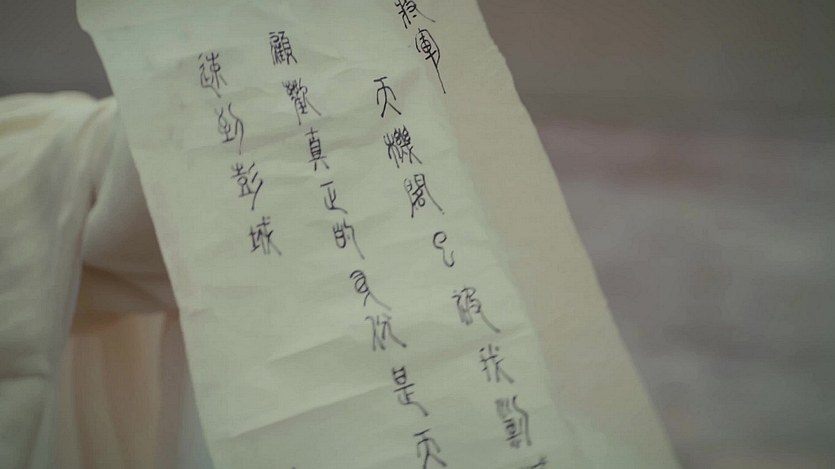 將軍
天機閣已被我剿
顧歡真正的身份是天
速到彭城